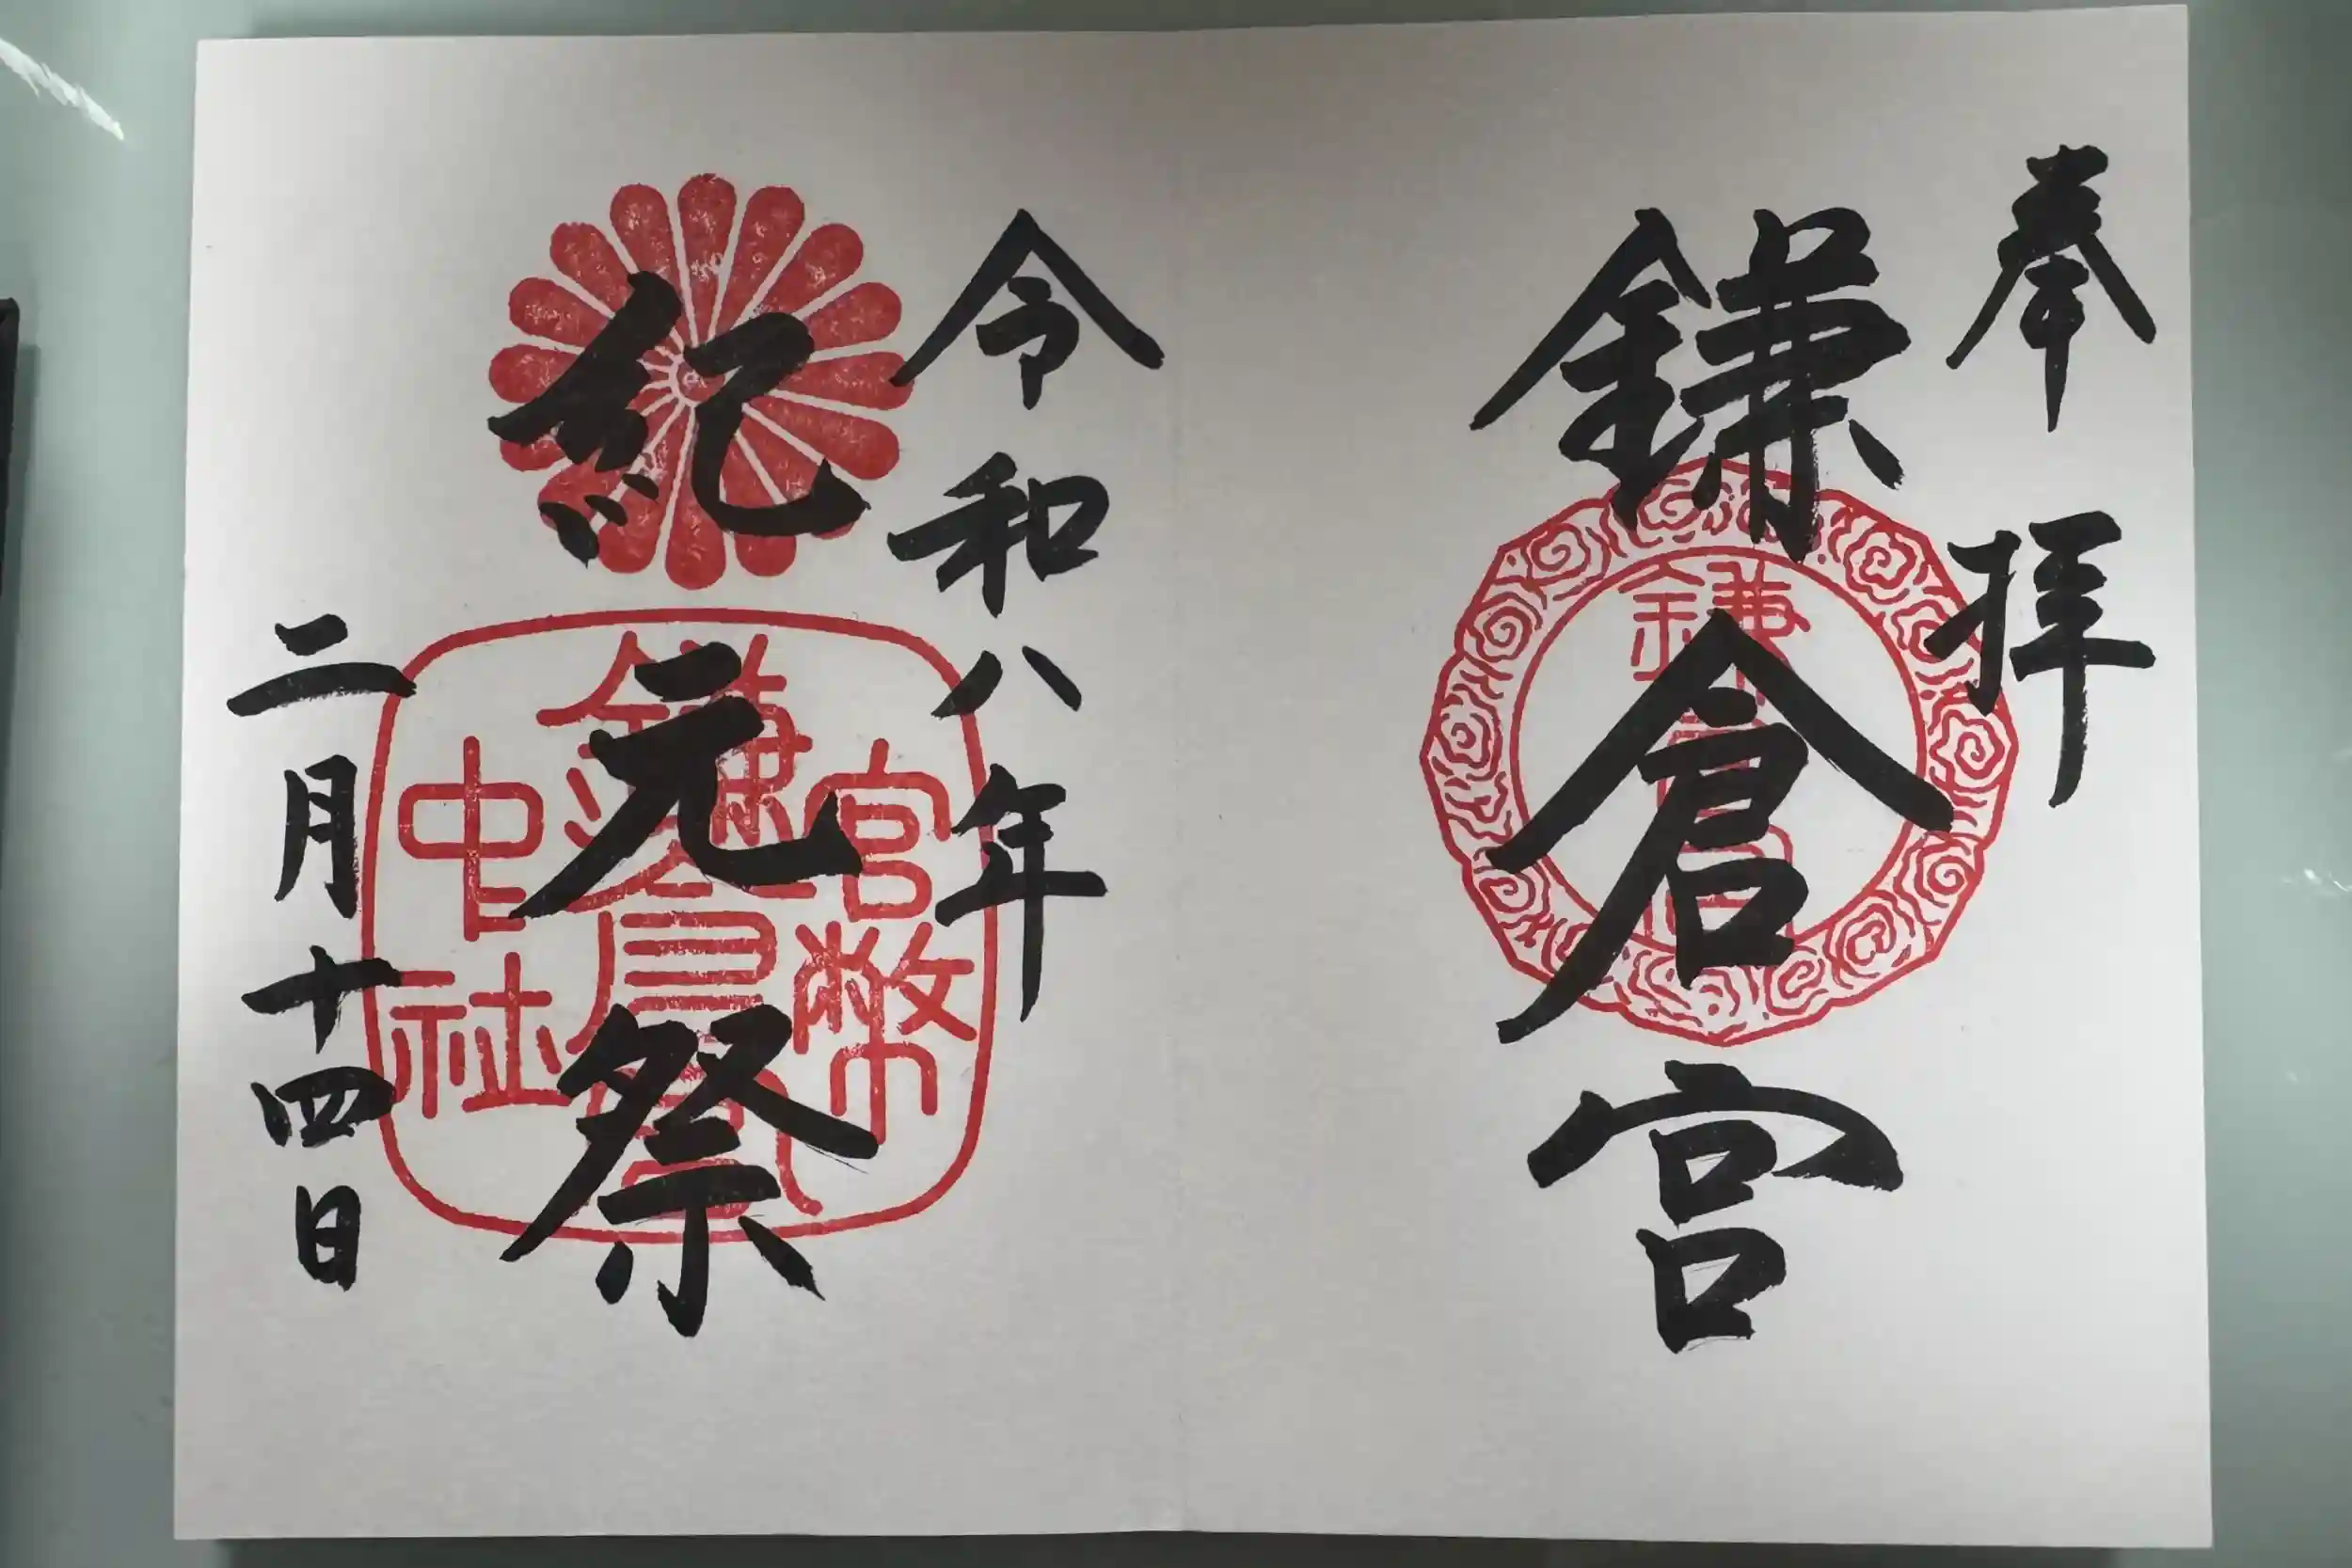 奉拝
鎌倉宮
鎌倉宮
令和八年
紀元祭
官幣
鎌倉宮
中社
二月十四日